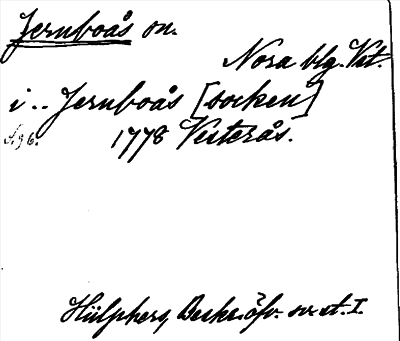 Jernboås on.
Nora blg. Vst.
i .. Jernboås [socken]
s. 96. 1778 Vesterås.
Hülphers, Beskr. öfv. sv. st. I.